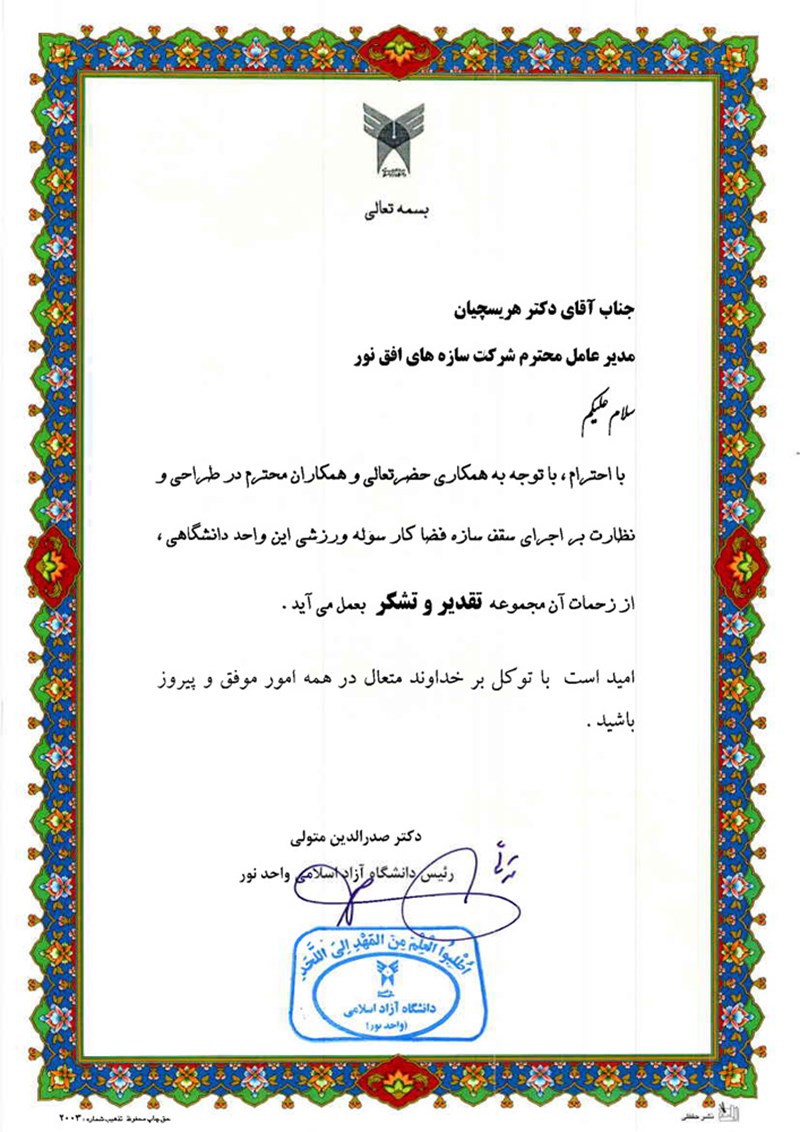 بسمه تعالی
جناب آقای دکتر هریسچیان
مدیر عامل محترم شرکت سازه های افق نور
سلام علیکم
با احترام ، با توجه به همکاری حضرتعالی و همکاران محترم در طراحی و
نظارت بر اجرای سقف سازه فضا کار سوله ورزشی این واحد دانشگاهی ،
از زحمات آن مجموعه تقدیر و تشکر بعمل می آید .
امید است با توکل بر خداوند متعال در همه امور موفق و پیروز
باشید .
دکتر صدرالدین متولی
رئیس دانشگاه آزاد اسلامی واحد نور
اُطْلِبُوا الْعِلْمَ مِنَ الْمَهْدِ اِلَی اللَّحَد
دانشگاه آزاد اسلامی
(واحد نور)
نشر حفظی
حق چاپ محفوظ تذهیب شماره : ۲۰۰۳